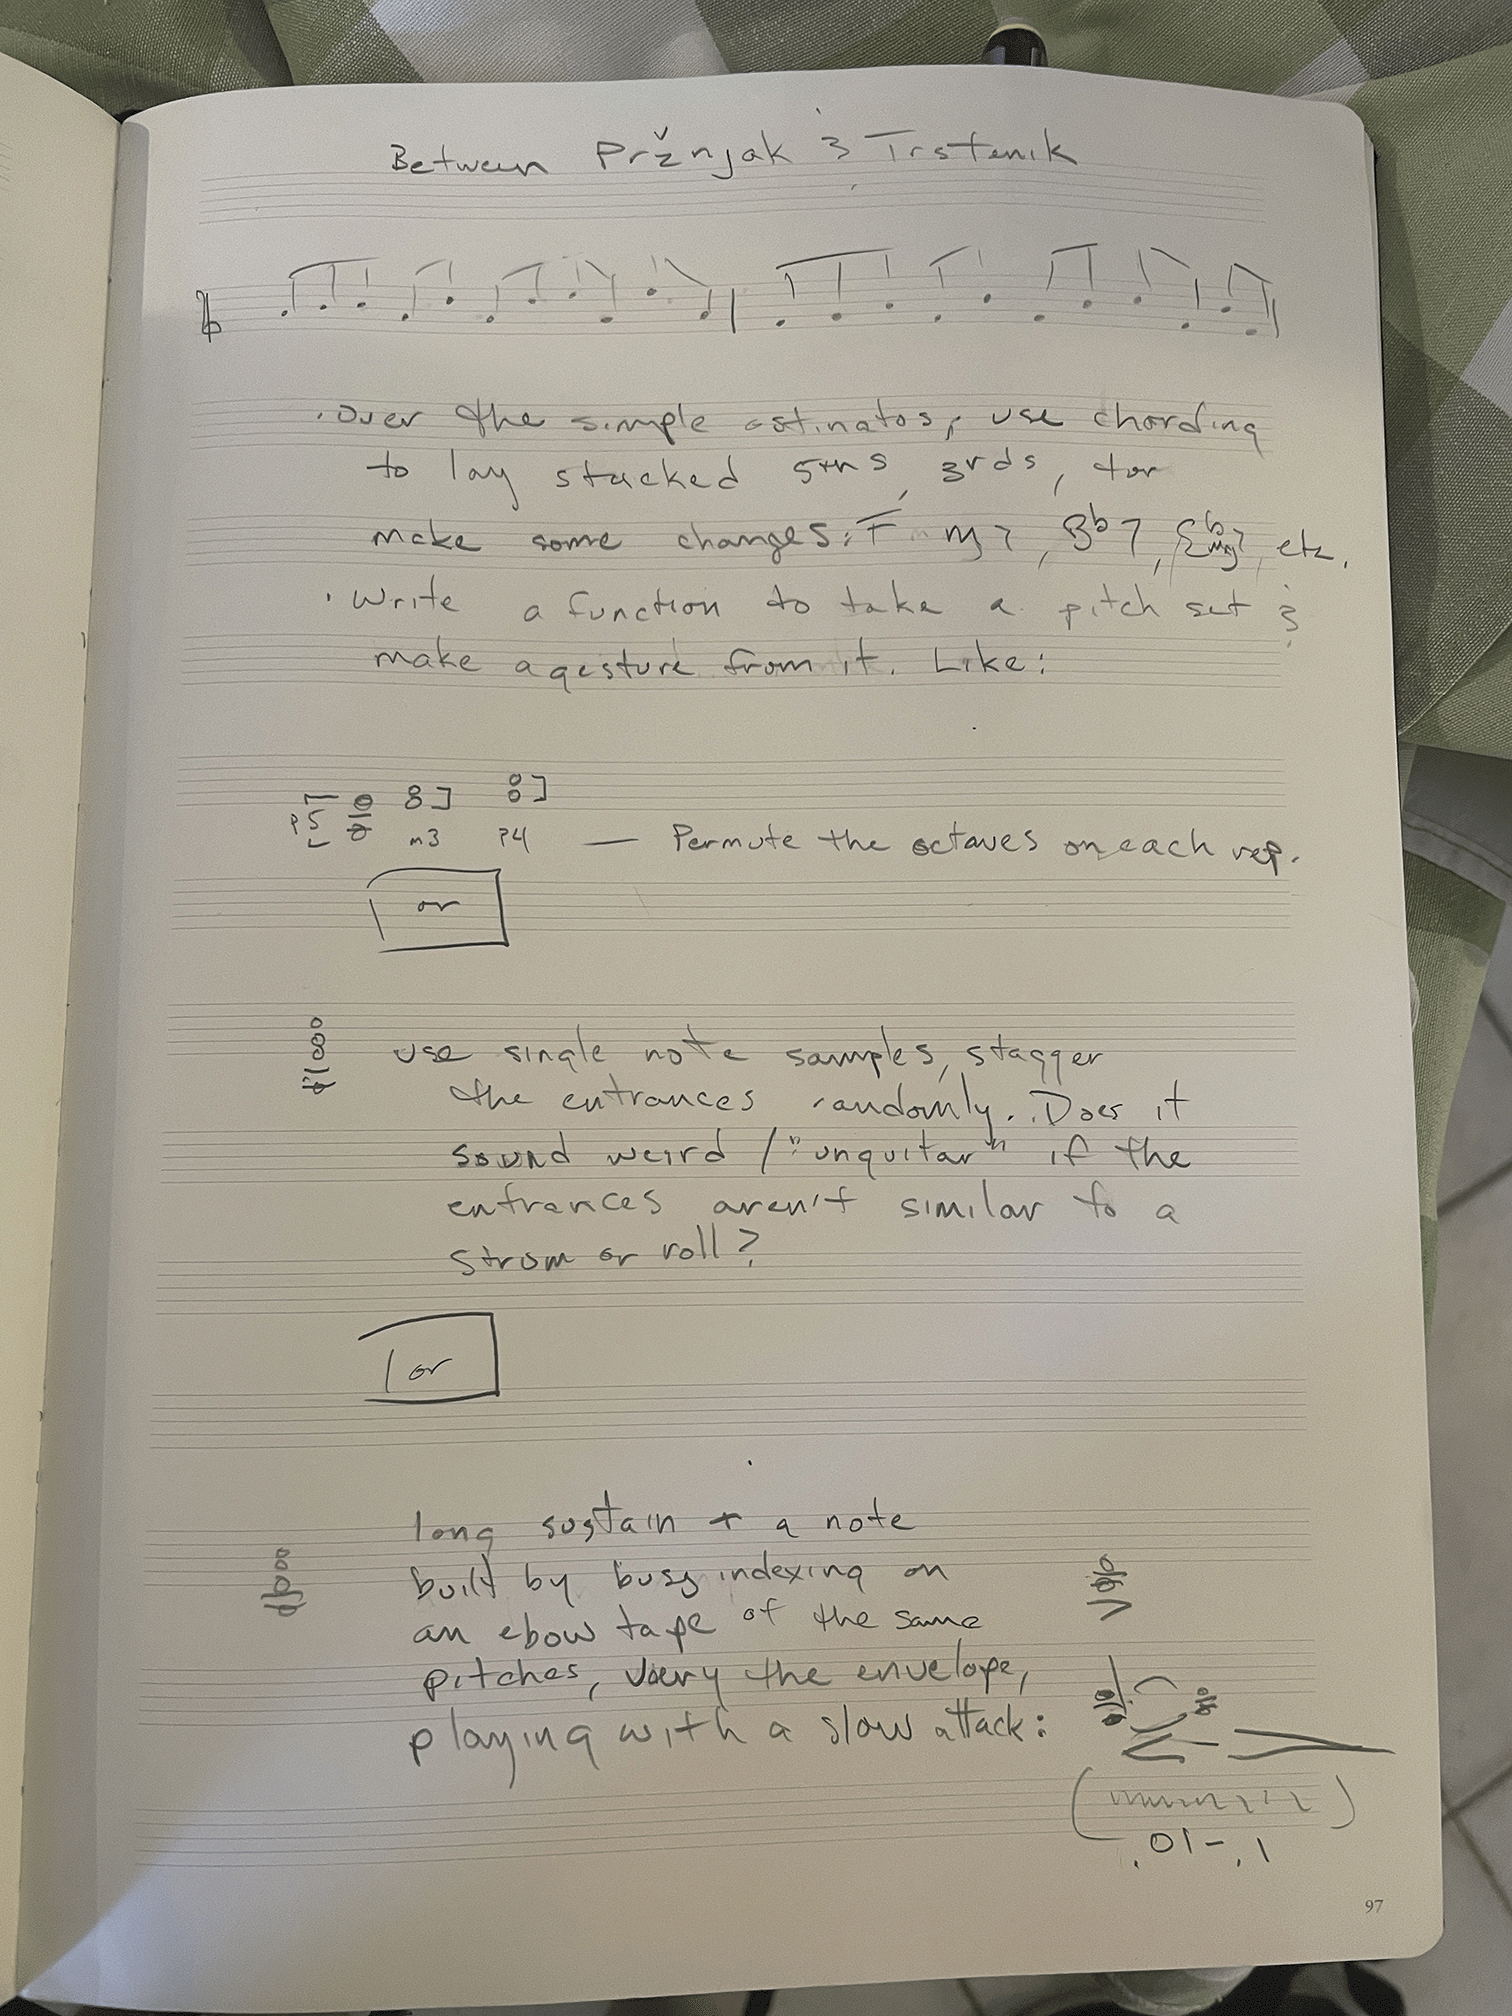 Between Pržnjak & Trstenik
· over the simple ostinatos, use chording
to lay stacked 5ths, 3rds, &or
make some changes: F m7, Bb7, Ebmaj7, etc.
· Write a function to take a pitch set &
make a gesture from it. Like:
P5 m3 P4 — Permute the octaves on each rep.
or
use single note samples, stagger
the entrances randomly. Does it
sound weird / "unguitar" if the
entrances aren't similar to a
strum or roll?
or
long sustain + a note
built by busy indexing on
an ebow tape of the same
pitches, vary the envelope,
playing with a slow attack:
.01-.1
97